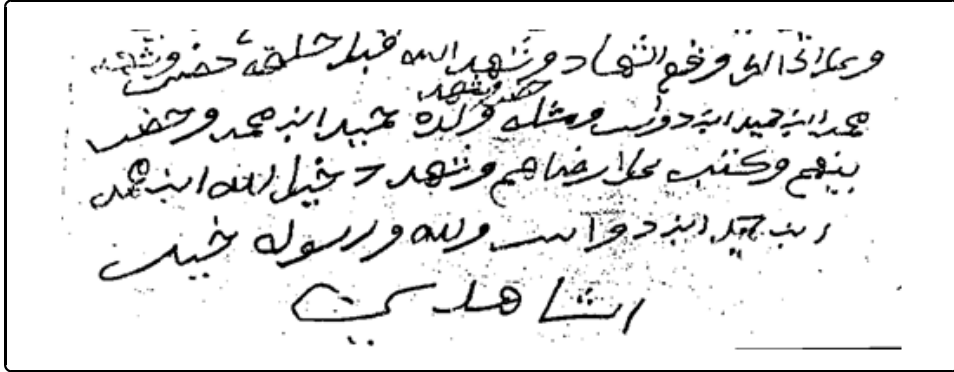 وعلى ذالك وقع الشهاد وشهد الله قبل خلقه حضر وشهد
محمد ابن حميد ابن دواس ومثله ولده حميد ابن محمد وحضر
حضر وشهد
بينهم وكتب على رضاهم وشهد دخيل الله ابن محمد
ابن حميد ابن دواس والله ورسوله خير
الشاهدين